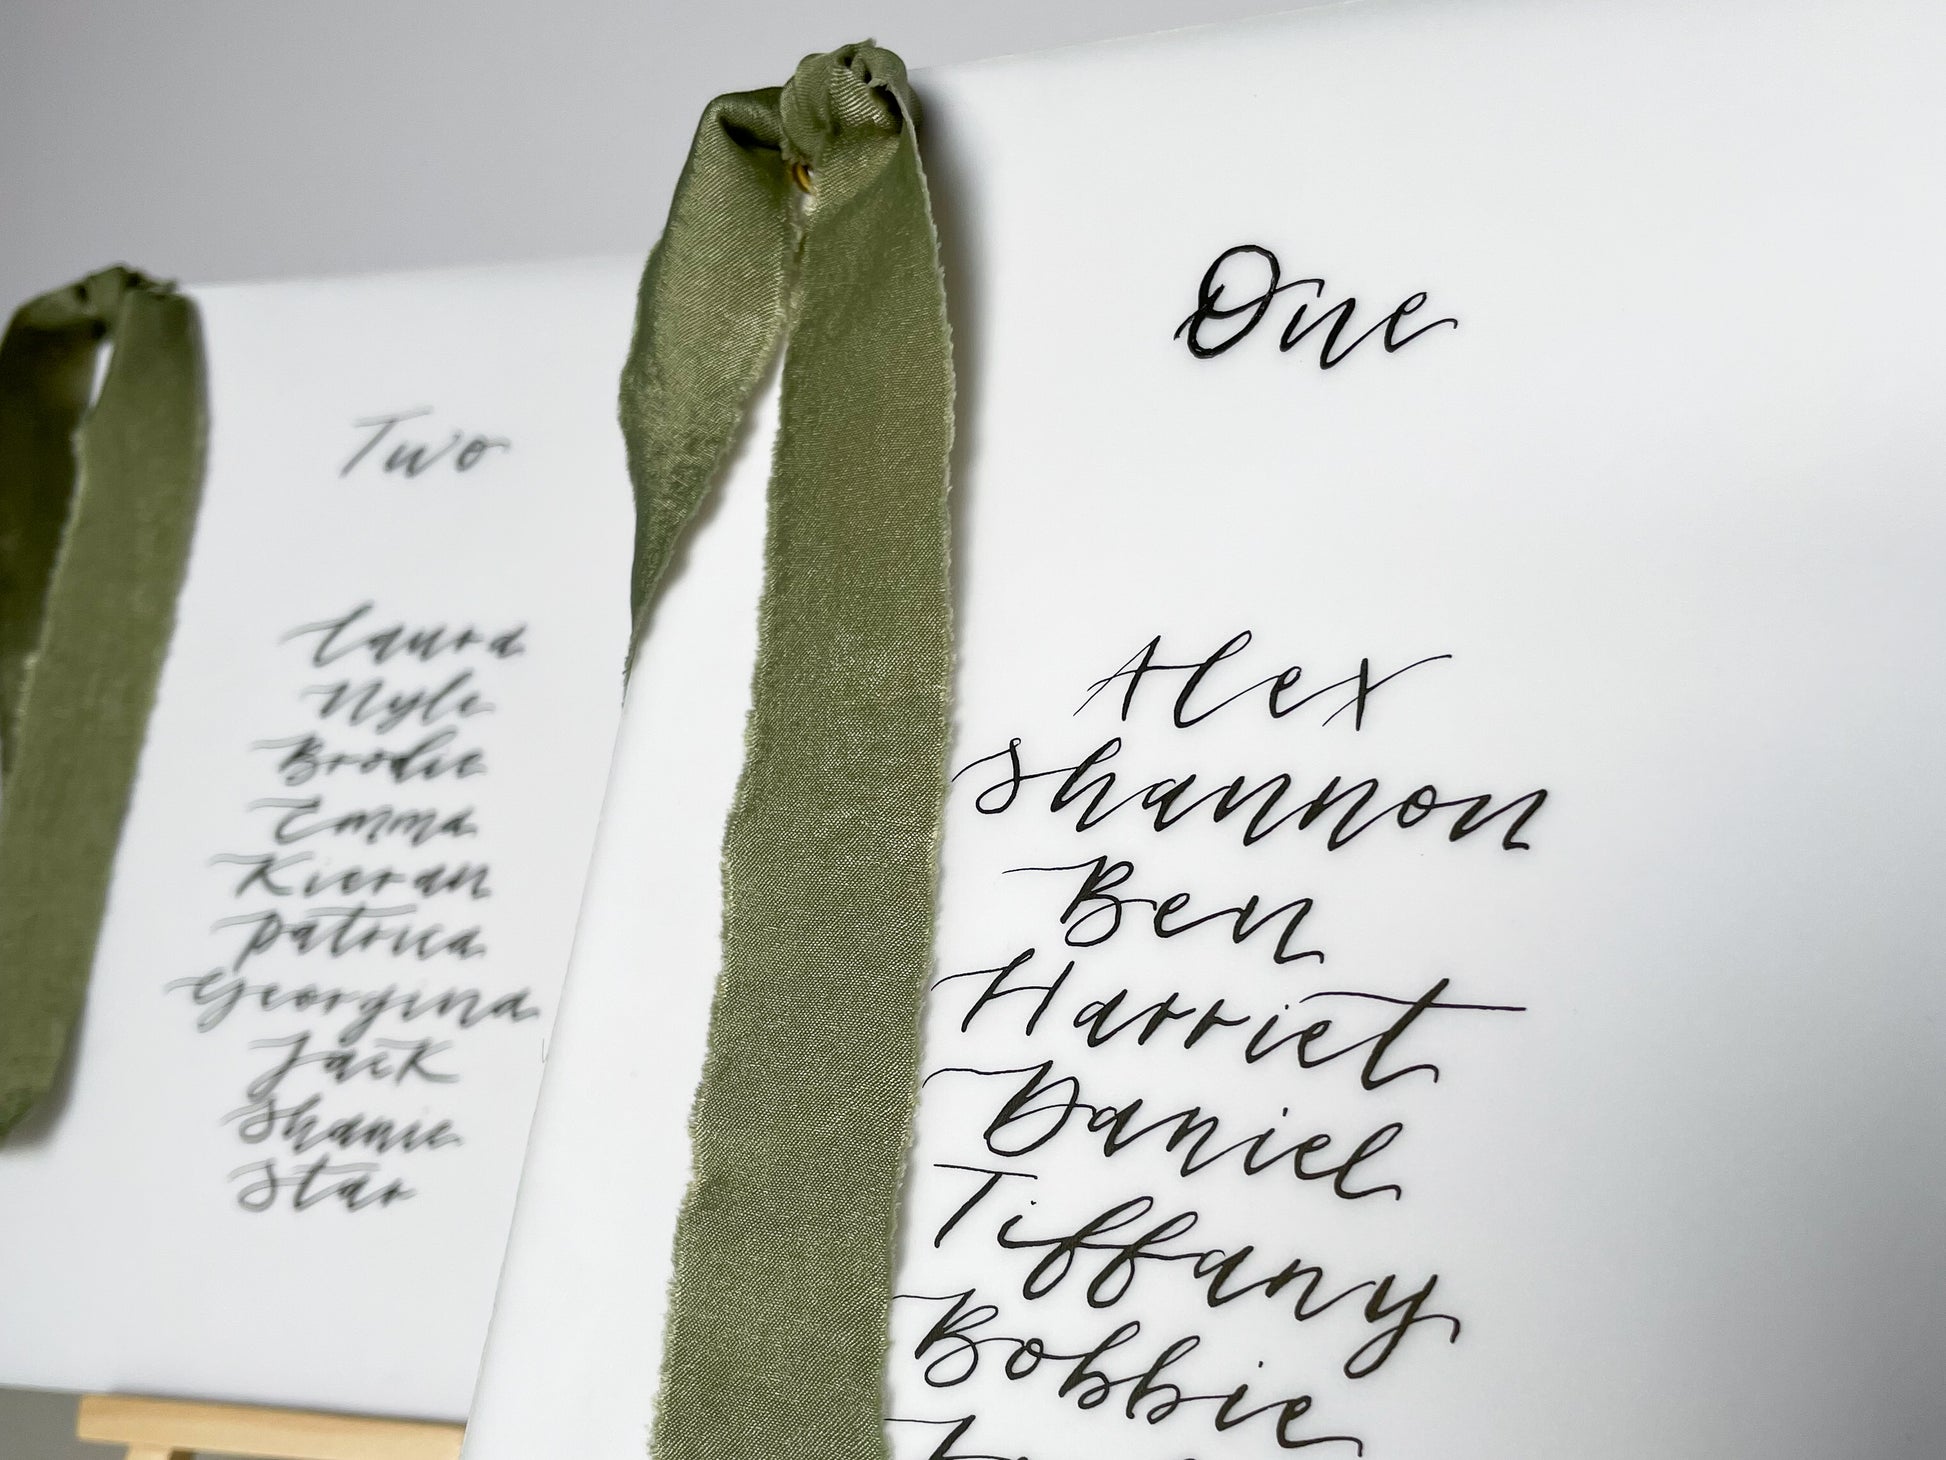 Two
Laura
Nyle
Brodie
Emma
Kieran
Patrica
Georgina
Jack
Shanie
Star
One
Alex
Shannon
Ben
Harriet
Daniel
Tiffany
Bobbie